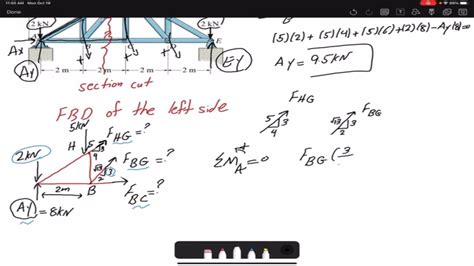 11:05 AM Mon Oct 19
Done
2 kN
2 kN
Ax
E
Ay
Ey
2 m
2 m
2 m
2 m
section cut
(5)(2)+(5)(4)+(5)(6)+(2)(8)-Ay(8)=0
Ay = 9.5 kN
FBD of the left side
5kN
H
5
3
4
FHG = ?
2kN
FBG = ?
√13
3
2
2m
B
FBC = ?
Ay = 8kN
FHG
5
3
4
FBG
√13
3
2
ΣMA = 0
FBG (3